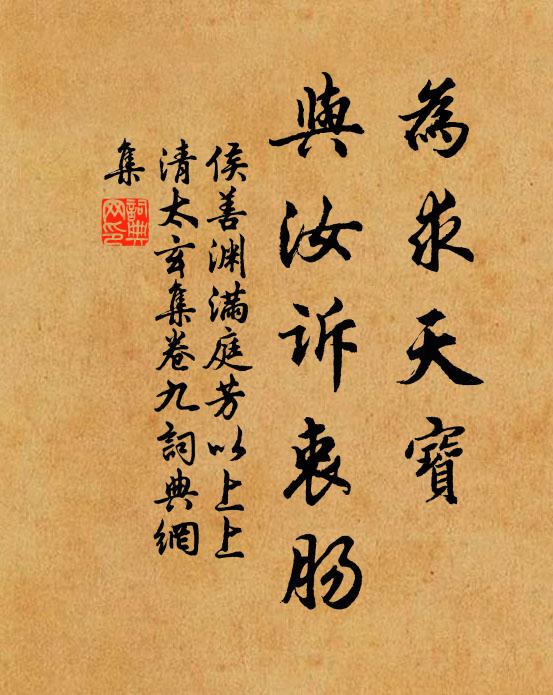 為求天寶
與汝诉衷肠
侯善渊满庭芳以上上
清太玄集卷九詞典網
集
詞典网印